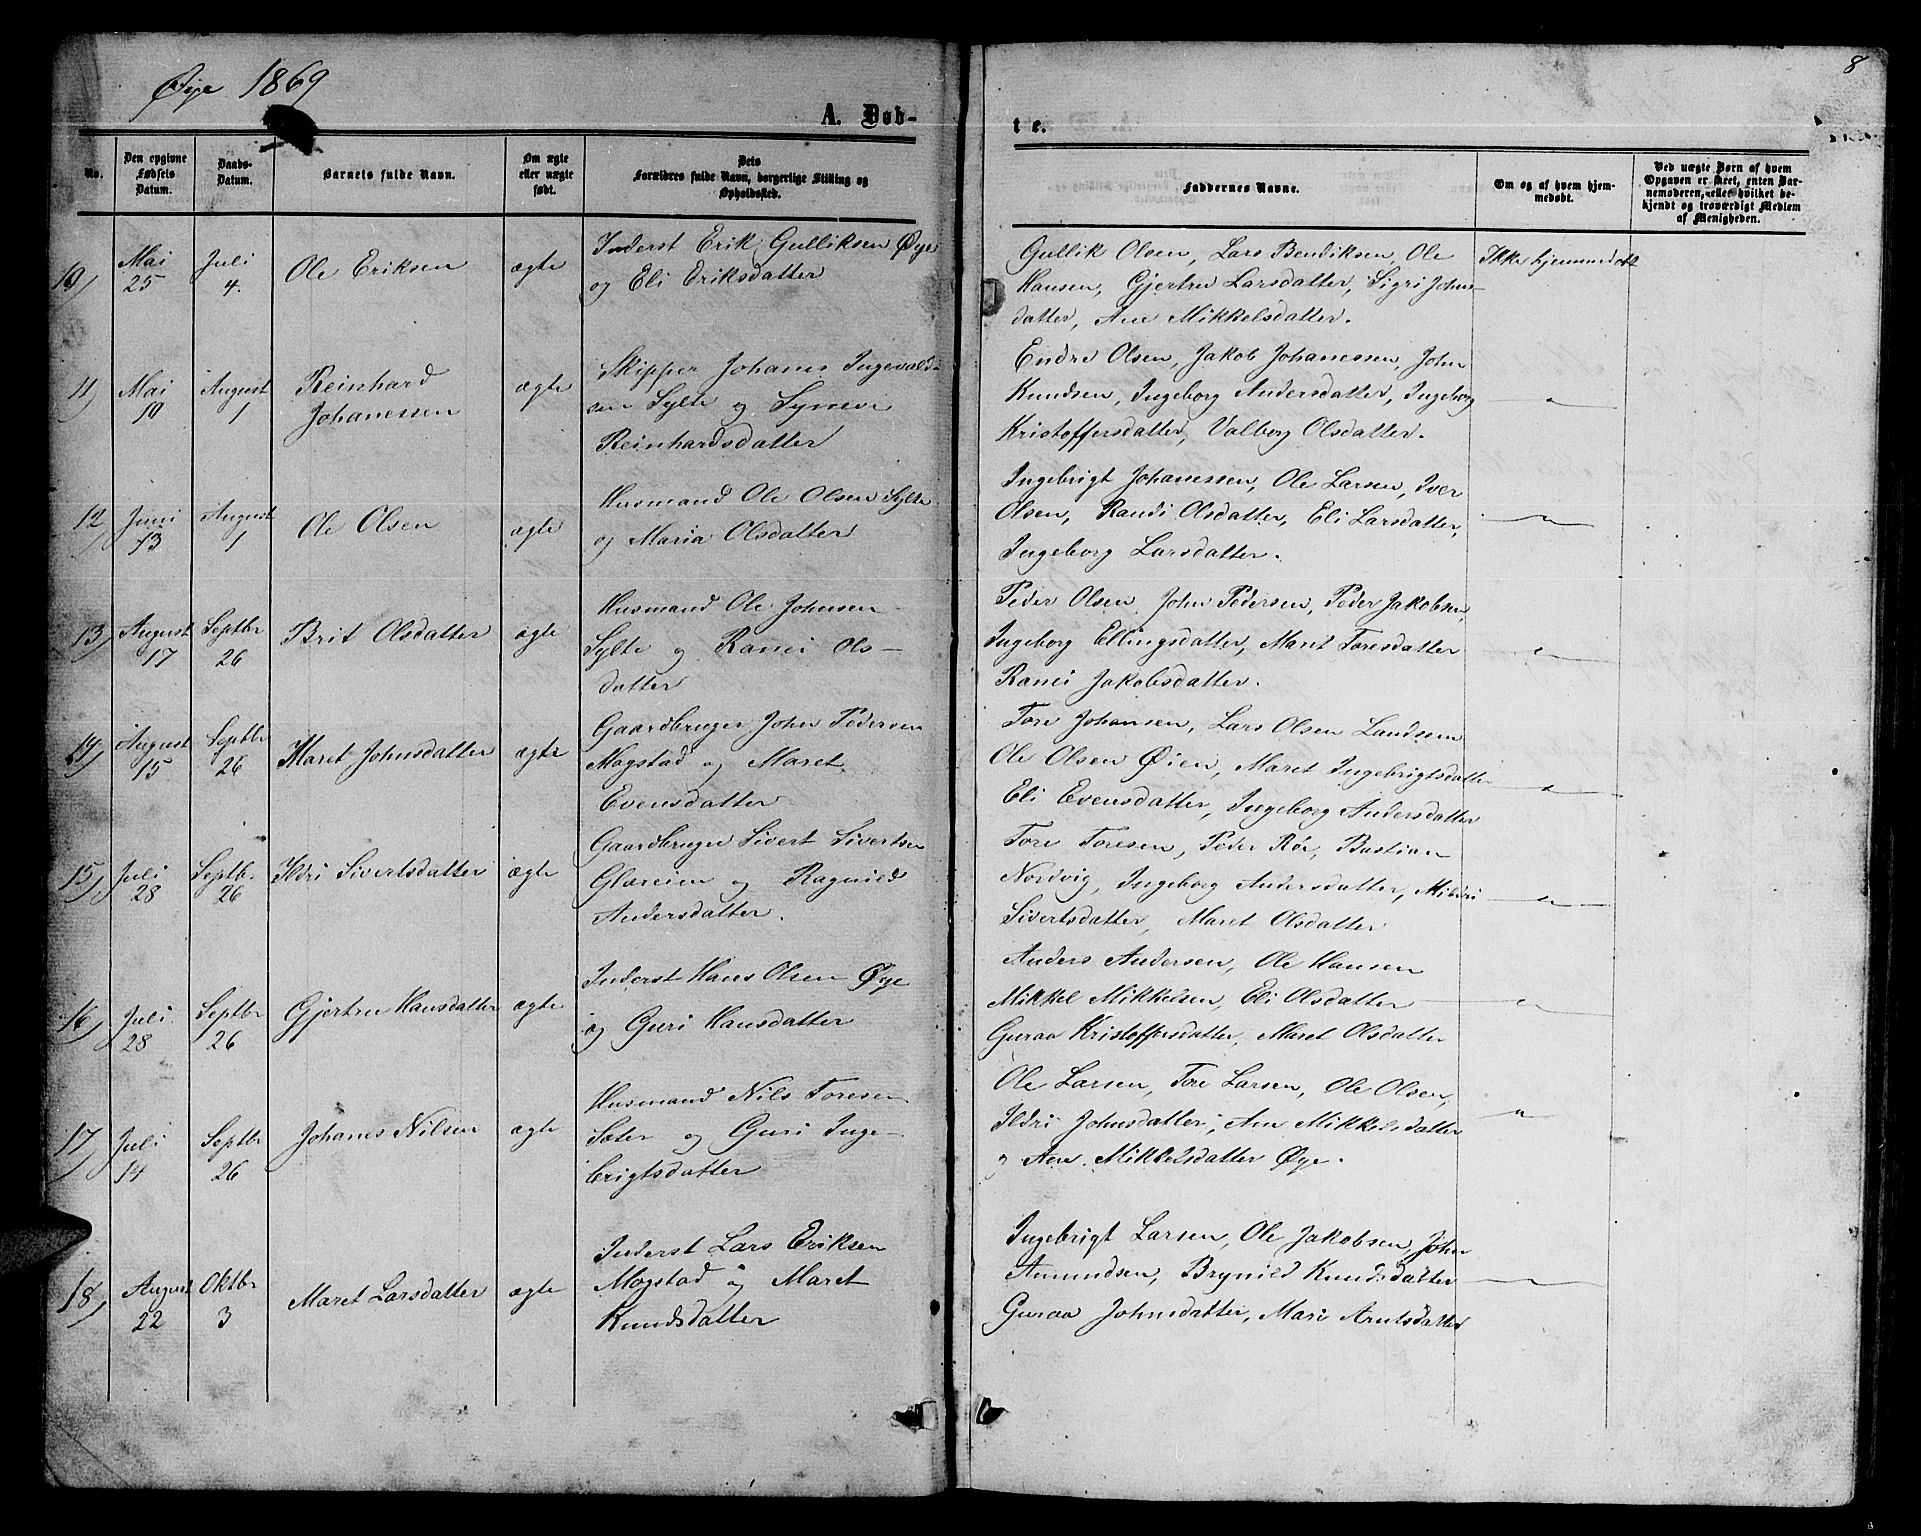 Øye 1869
8
A. Døb-
te.
No.
Den opgivne Fødsels Datum.
Daabs-Datum.
Barnets fulde Navn.
Om ægte eller uægte født.
Dets Forældres fulde Navn, borgerlige Stilling og Opholdssted.
Faddernes Navne.
Om og af hvem hjemmedøbt.
Ved uægte Børn af hvem Opgaven er skeet, enten Barnemoderen, eller hvilket bekjendt og troværdigt Medlem af Menigheden.
10) Mai 25 Juli 4. Ole Eriksen ægte
Inderst Erik Gulliksen Øye
og Eli Eriksdatter
Gullik Olsen, Lars Bendiksen, Ole
Hansen, Gjertru Larsdatter, Sigri Johns-
datter, Ane Mikkelsdatter.
Ikke hjemmedøbt
11) Mai 19 August 1 Reinhard
Johanessen ægte
Skipper Johanes Ingevald-
sen Sylte og Synevi
Reinhardsdatter
Endre Olsen, Jakob Johanessen, John
Knudsen, Ingeborg Andersdatter, Ingeborg
Kristoffersdatter, Valborg Olsdatter.
"
12) Juni 13 August 1 Ole Olsen ægte
Husmand Ole Olsen Sylte
og Maria Olsdatter
Ingebrigt Johanessen, Ole Larsen, Iver
Olsen, Randi Olsdatter, Eli Larsdatter,
Ingeborg Larsdatter.
"
13) August 17 Septbr 26 Brit Olsdatter ægte
Husmand Ole Johnsen
Sylte og Ranei Ols-
datter
Peder Olsen, John Pedersen, Peder Jakobsen,
Ingeborg Ellingsdatter, Maret Toresdatter
Ranei Jakobsdatter.
"
14) August 15 Septbr 26 Maret Johnsdatter ægte
Gaardbruger John Pedersen
Mogstad og Maret
Evensdatter
Tore Johansen, Lars Olsen Landsem
Ole Olsen Øien, Maret Ingebrigtsdatter
Eli Evensdatter, Ingeborg Andersdatter
"
15) Juli 28 Septbr. 26 Ildri Sivertsdatter ægte
Gaardbruger Sivert Sivertsen
Glæreien og Ragnild
Andersdatter.
Tore Toresen, Peder Rør, Bastian
Nordvig, Ingeborg Andersdatter, Mildri
Sivertsdatter, Maret Olsdatter
"
16) Juli 28 Septbr 26 Gjertru Hansdatter ægte
Inderst Hans Olsen Øye
og Guri Hansdatter
Anders Andersen, Ole Hansen
Mikkel Mikkelsen, Eli Olsdatter
Guraa Kristoffersdatter, Maret Olsdatter
"
17) Juli 14 Septbr 26 Johanes Nilsen ægte
Husmand Nils Toresen
Sæter og Guri Inge-
brigtsdatter
Ole Larsen, Tore Larsen, Ole Olsen,
Ildri Johnsdatter, Ane Mikkelsdatter
og Ane Mikkelsdatter Øye.
"
18) August 22 Oktbr 3 Maret Larsdatter ægte
Inderst Lars Eriksen
Mogstad og Maret
Knudsdatter
Ingebrigt Larsen, Ole Jakobsen, John
Amundsen, Brynild Knudsdatter
Guraa Johnsdatter, Mari Arntsdatter
"